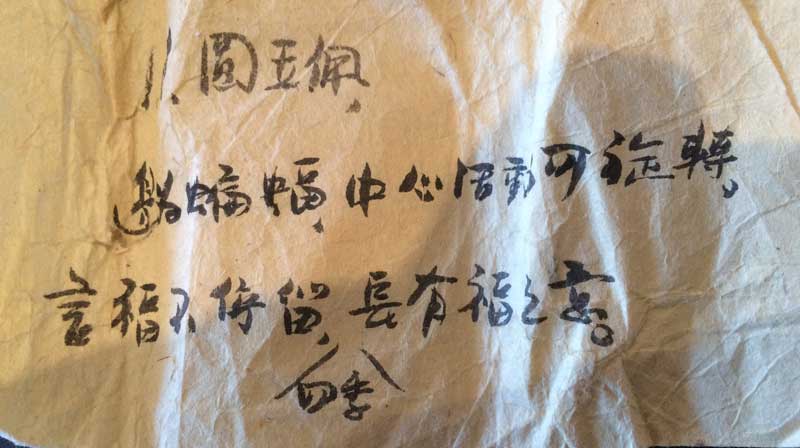 圓玉佩,
邊蝙蝠,中心活動可旋轉。
言福不停留,長有福之意。
四季